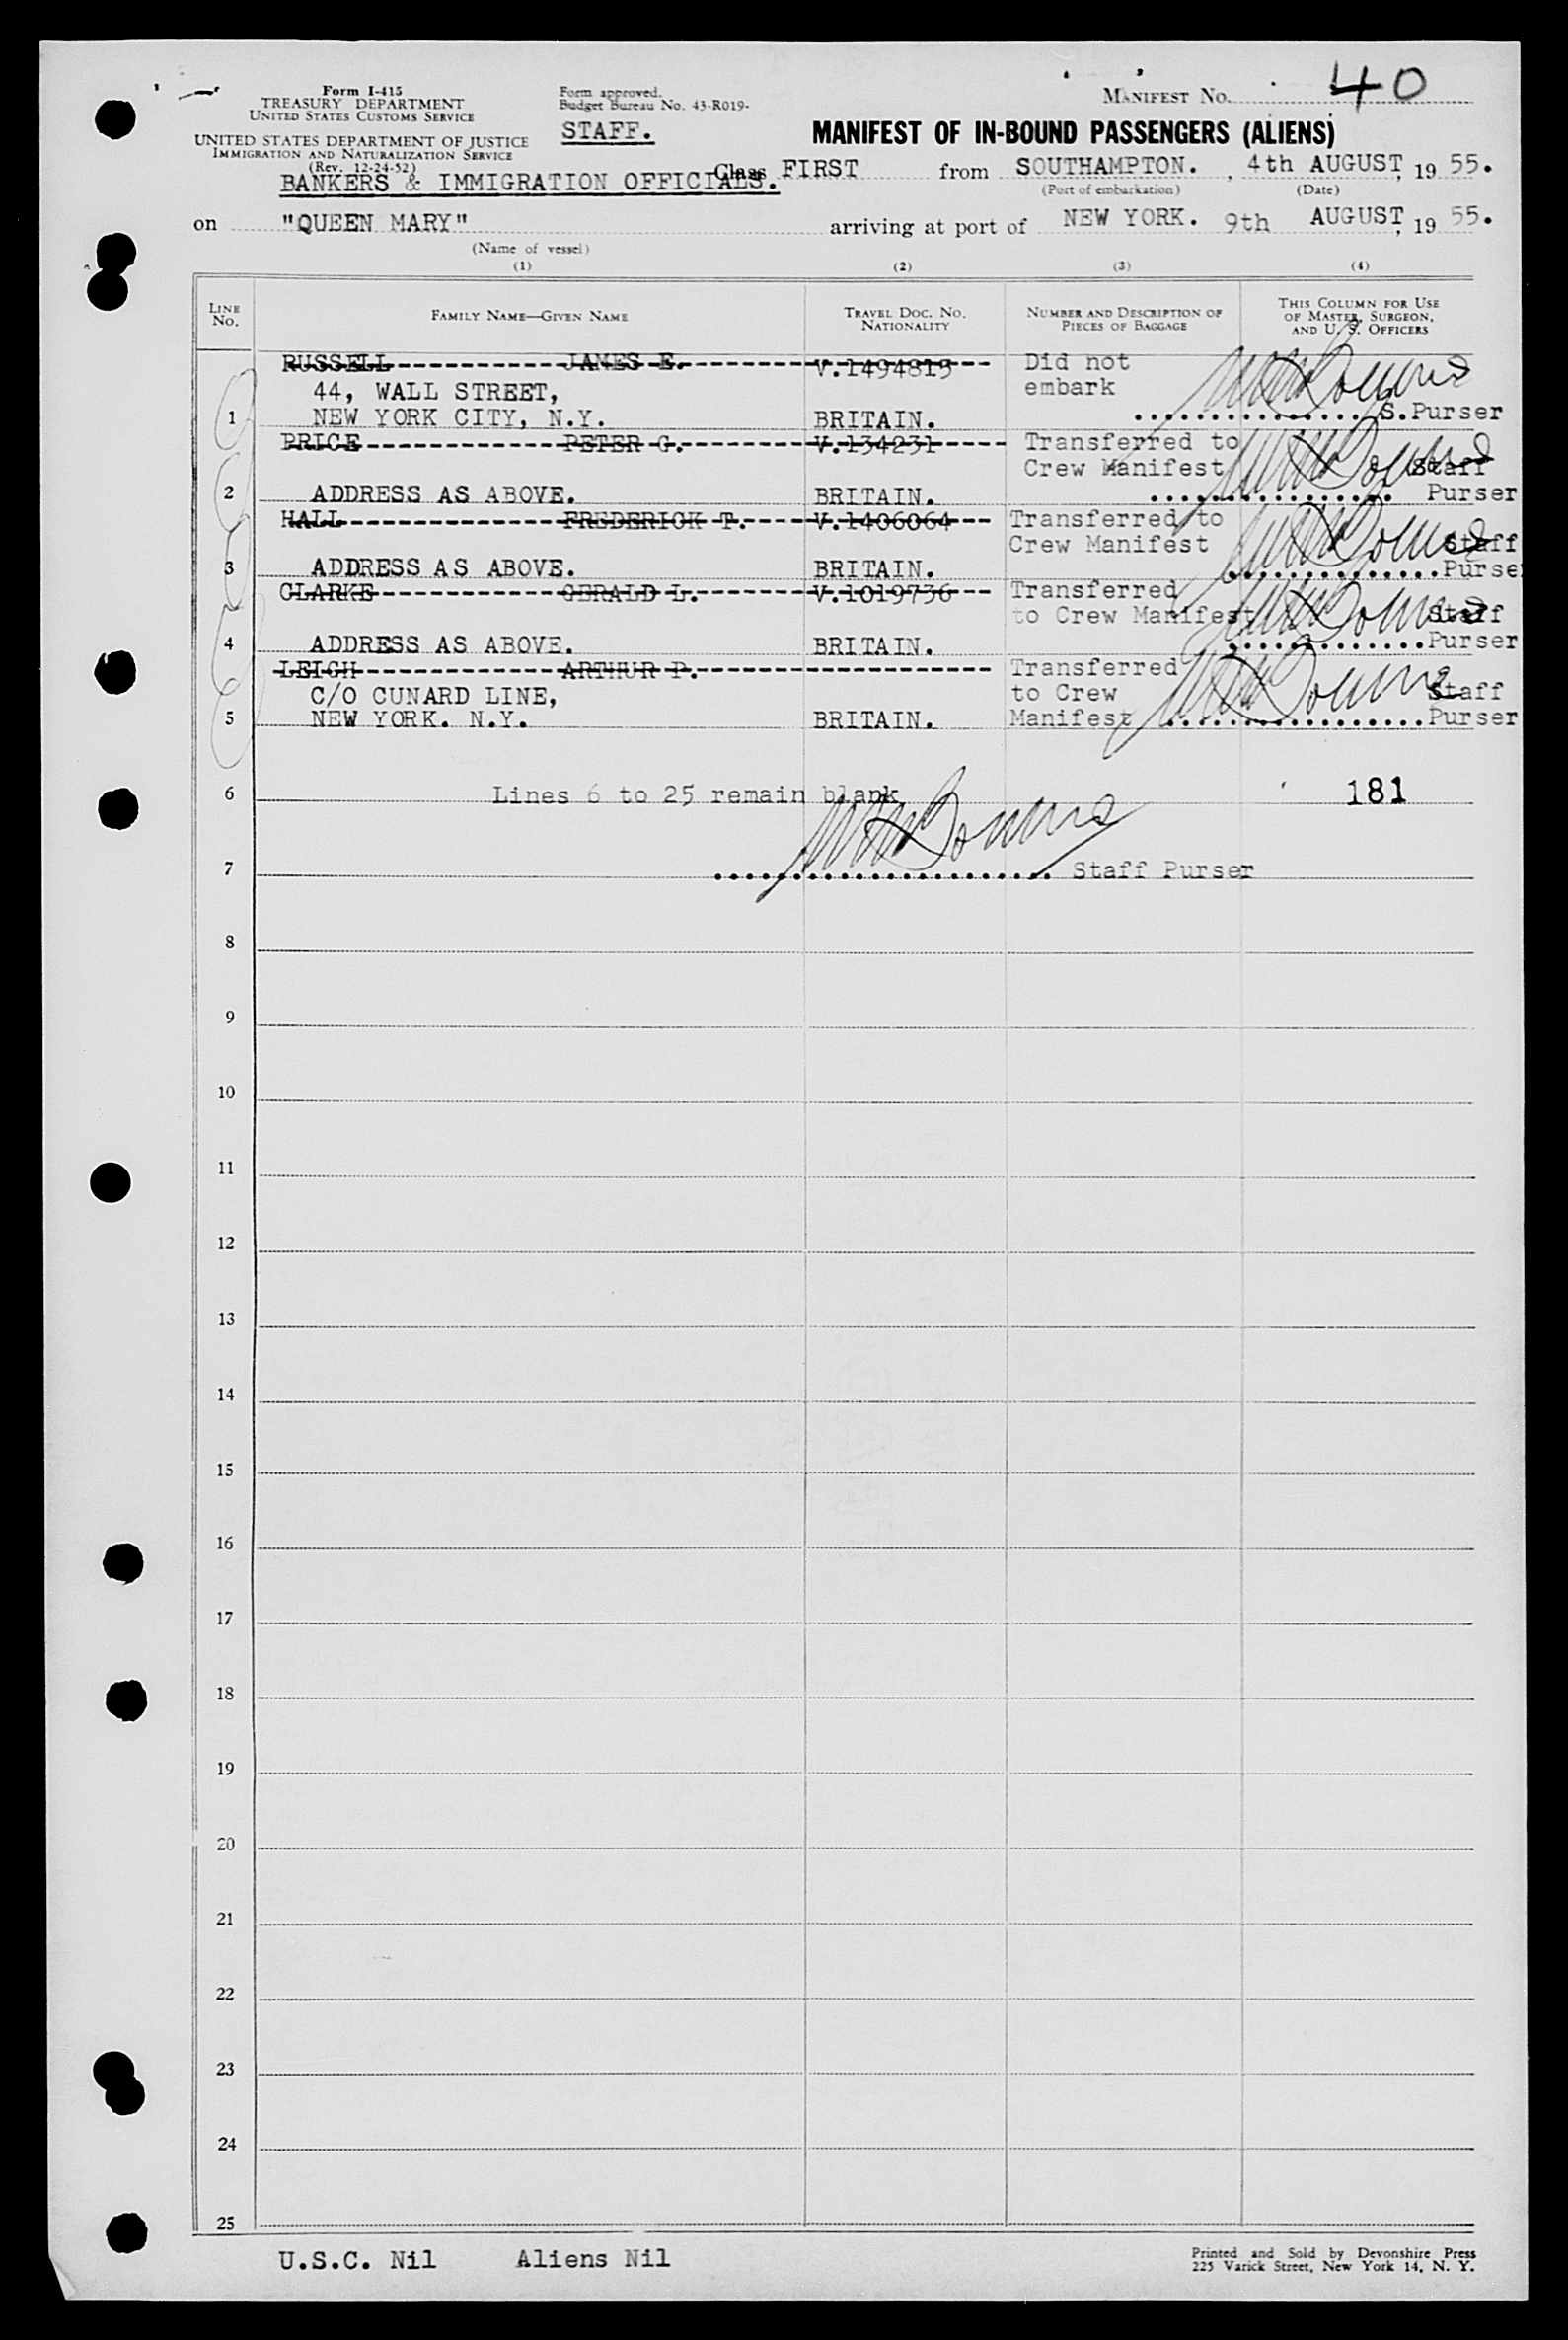 Form I-415
TREASURY DEPARTMENT
UNITED STATES CUSTOMS SERVICE
UNITED STATES DEPARTMENT OF JUSTICE
IMMIGRATION AND NATURALIZATION SERVICE
(Rev. 12-24-52)
Form approved.
Budget Bureau No. 43-R019-
STAFF.
MANIFEST NO. 40
MANIFEST OF IN-BOUND PASSENGERS (ALIENS)
BANKERS & IMMIGRATION OFFICIALS. Class FIRST from SOUTHAMPTON. , 4th AUGUST, 19 55.
(Port of embarkation) (Date)
on "QUEEN MARY" arriving at port of NEW YORK. 9th AUGUST, 19 55.
(Name of vessel)
(1) (2) (3) (4)
LINE NO.
FAMILY NAME—GIVEN NAME
TRAVEL DOC. NO. NATIONALITY
NUMBER AND DESCRIPTION OF PIECES OF BAGGAGE
THIS COLUMN FOR USE OF MASTER, SURGEON, AND U. S. OFFICERS
RUSSELL JAMES E. V.1494815 Did not
44, WALL STREET, embark
1 NEW YORK CITY, N.Y. BRITAIN. S.Purser
PRICE PETER G. V.134231 Transferred to
Crew Manifest Staff
2 ADDRESS AS ABOVE. BRITAIN. Purser
HALL FREDERICK T. V.1406064 Transferred to
Crew Manifest Staff
3 ADDRESS AS ABOVE. BRITAIN. Purser
CLARKE GERALD L. V.1019736 Transferred
to Crew Manifest Staff
4 ADDRESS AS ABOVE. BRITAIN. Purser
LEIGH ARTHUR P. Transferred
C/O CUNARD LINE, to Crew Staff
5 NEW YORK. N.Y. BRITAIN. Manifest Purser
6 Lines 6 to 25 remain blank 181
7 Staff Purser
8
9
10
11
12
13
14
15
16
17
18
19
20
21
22
23
24
25
U.S.C. Nil Aliens Nil
Printed and Sold by Devonshire Press
225 Varick Street, New York 14, N. Y.